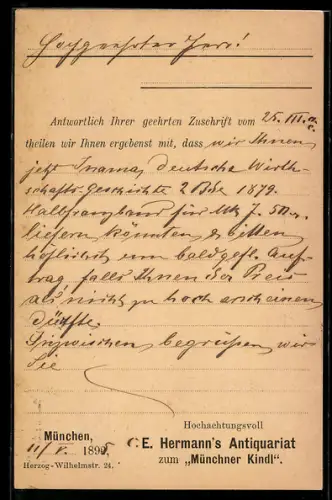 Hochgeehrter Herr!
Antwortlich Ihrer geehrten Zuschrift vom 25. III. a.c.
theilen wir Ihnen ergebenst mit, dass wir Ihnen
jetzt Inama, deutsche Wirth-
schafts-Geschichte 2 Bde 1879.
Halbfranzband für Mk 7.50
liefern könnten & bitten
höflichst um baldgefl. Auf-
trag, falls Ihnen der Preis
als nicht zu hoch erscheinen
dürfte.
Inzwischen begrüßen wir
Sie
Hochachtungsvoll
München, E. Hermann's Antiquariat
11/V. 1895 zum „Münchner Kindl".
Herzog-Wilhelmstr. 24.